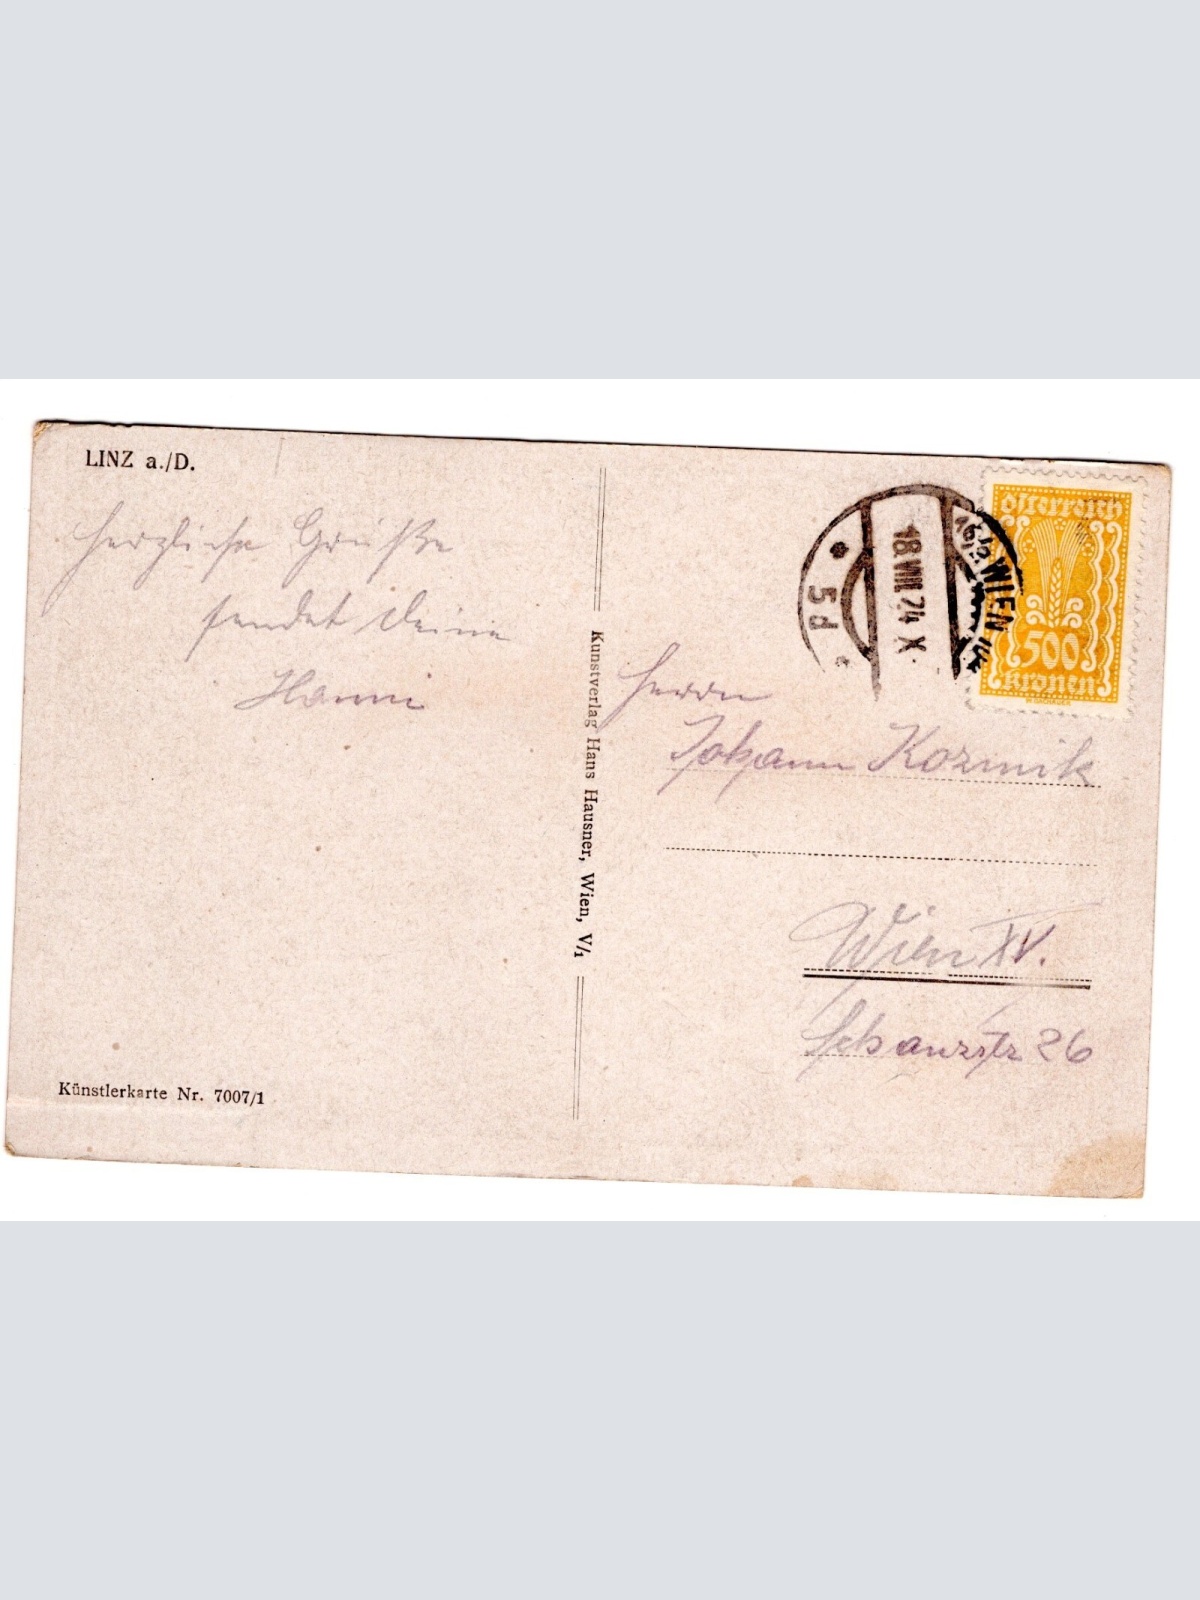 LINZ a./D.
Herzliche Grüße
sendet Deine
Hanni
Künstlerkarte Nr. 7007/1
Kunstverlag Hans Hausner, Wien, V/1
WIEN
18.VIII.24 X
5d
Österreich
500
Kronen
Herrn
Johann Kozmik
Wien XV.
Schanzstr 26